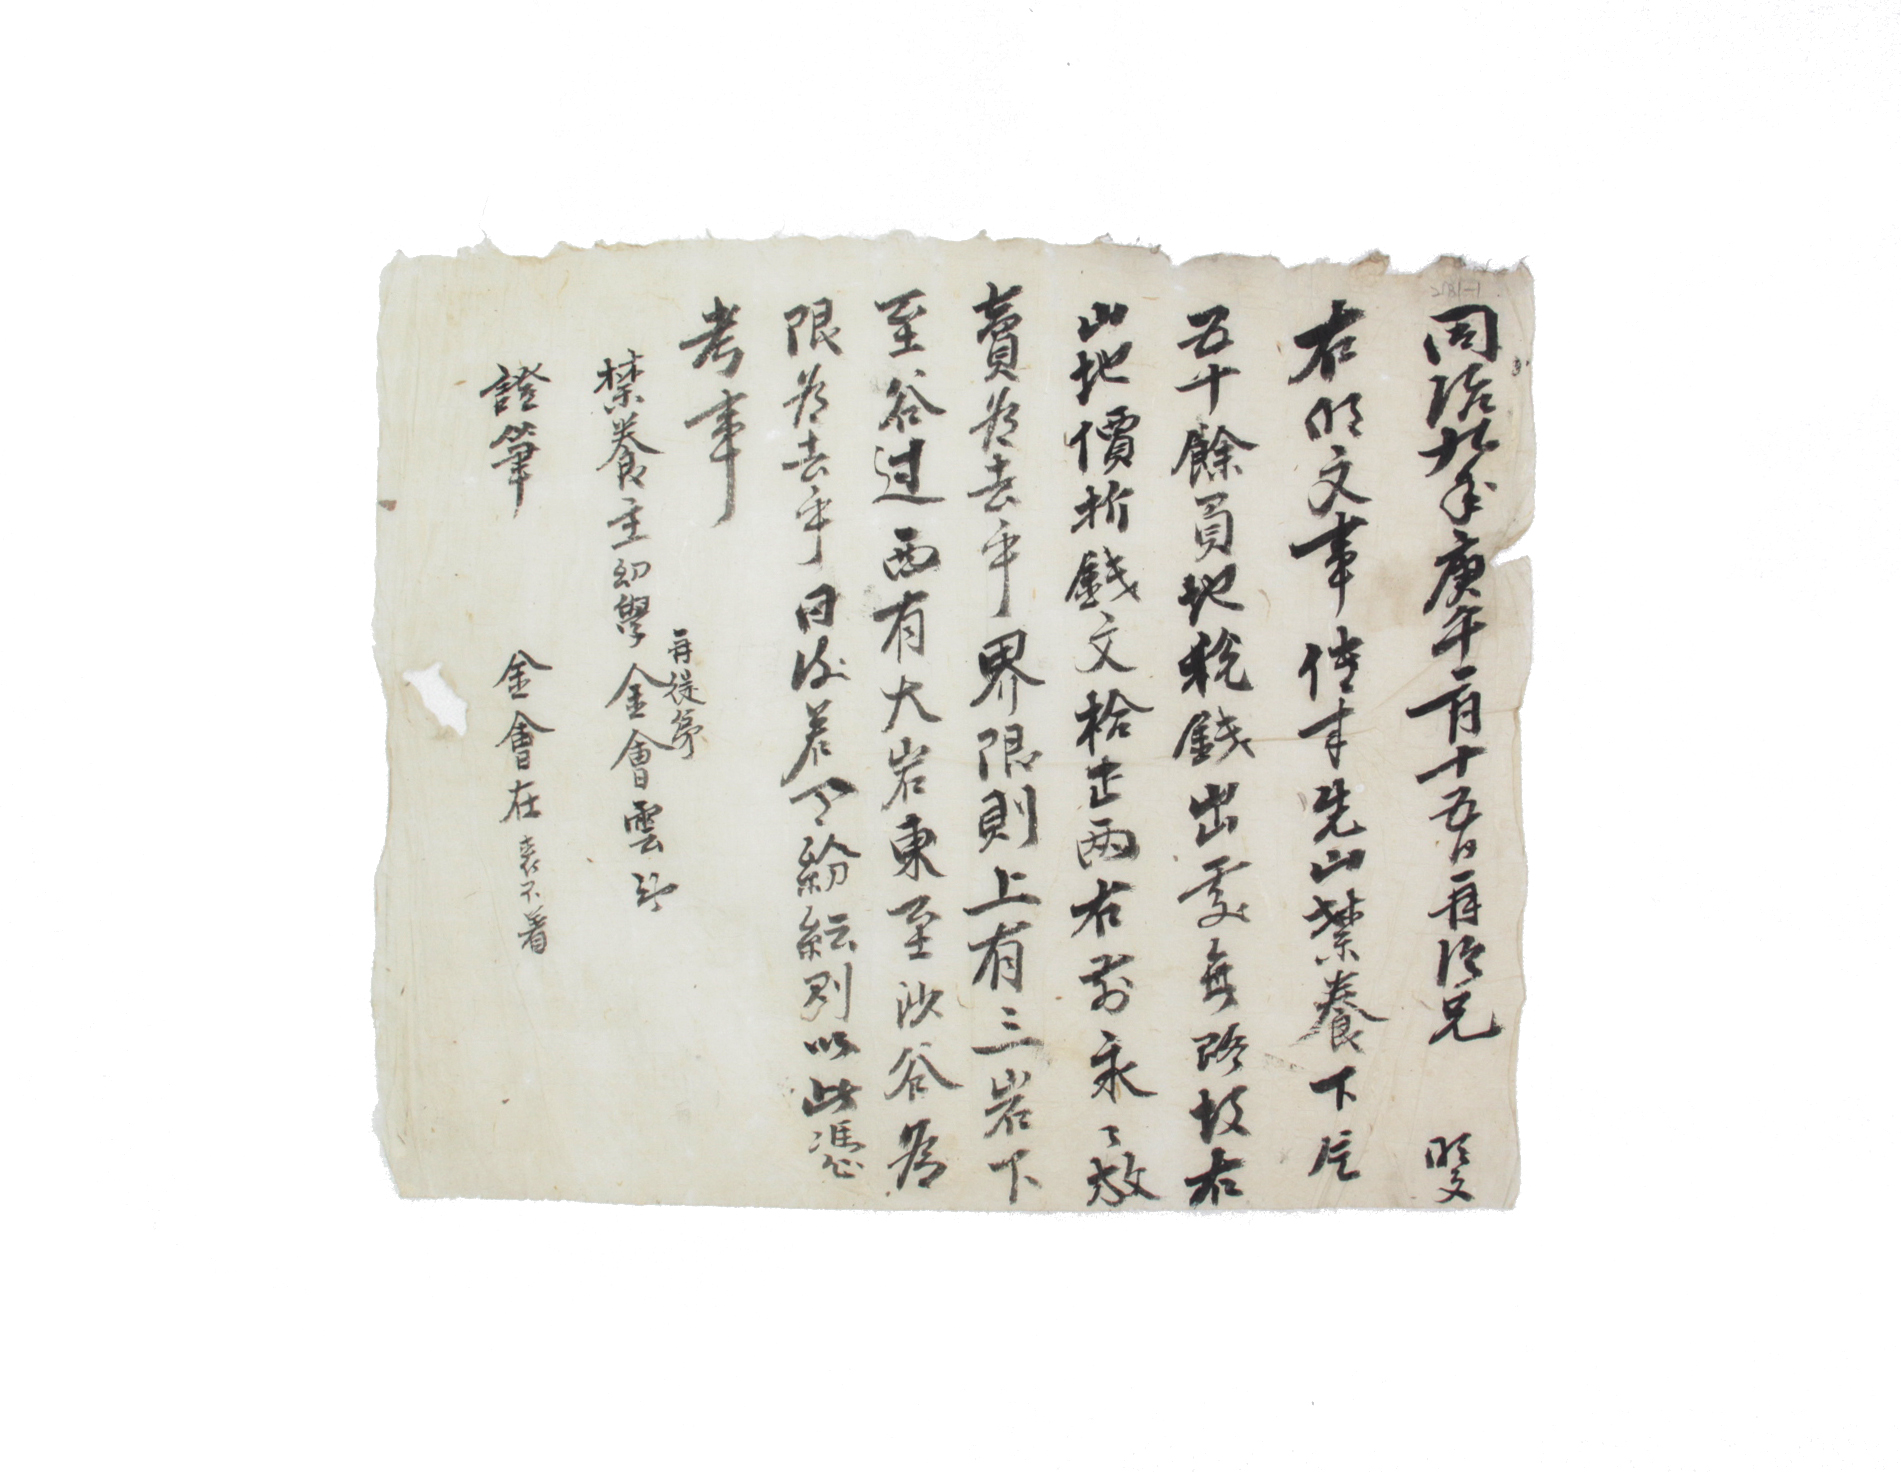 同治九年庚午二月十五日再從兄 明文
右明文事傳來先山禁養下片
五十餘員地稅錢出處無路故右
山地價折錢文拾壹兩右前永〻放
賣爲去乎界限則上有三岩下
至谷过西有大岩東至沙谷爲
限爲去乎日後若有紛紜則以此憑
考事
禁養主幼學 再從弟 金會雲
證筆 金會在 喪不着